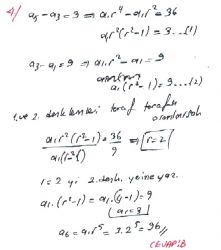 4/
a₅ - a₃ = 3 ⇒ a₁r⁴ - a₁r² = 36
a₁r²(r²-1) = 3...(1)
a₃ - a₁ = 9 ⇒ a₁r² - a₁ = 9
a₁(r²-1) = 9...(2)
1. ve 2. denklemleri taraf tarafa
a₁r²(r²-1) / a₁(r²-1) = 36/9 ⇒ r=2
r=2 yi 2. denk. yerine yaz.
a₁.(r²-1) = a₁.(4-1) = 9
a₁ = 3
a₆ = a₁r⁵ = 3.2⁵ = 96//
CEVAP:B